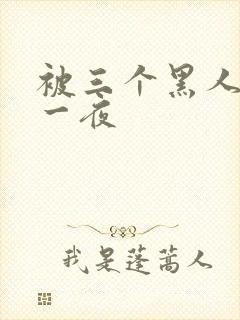 被三个黑人
一夜
我是蓬蒿人